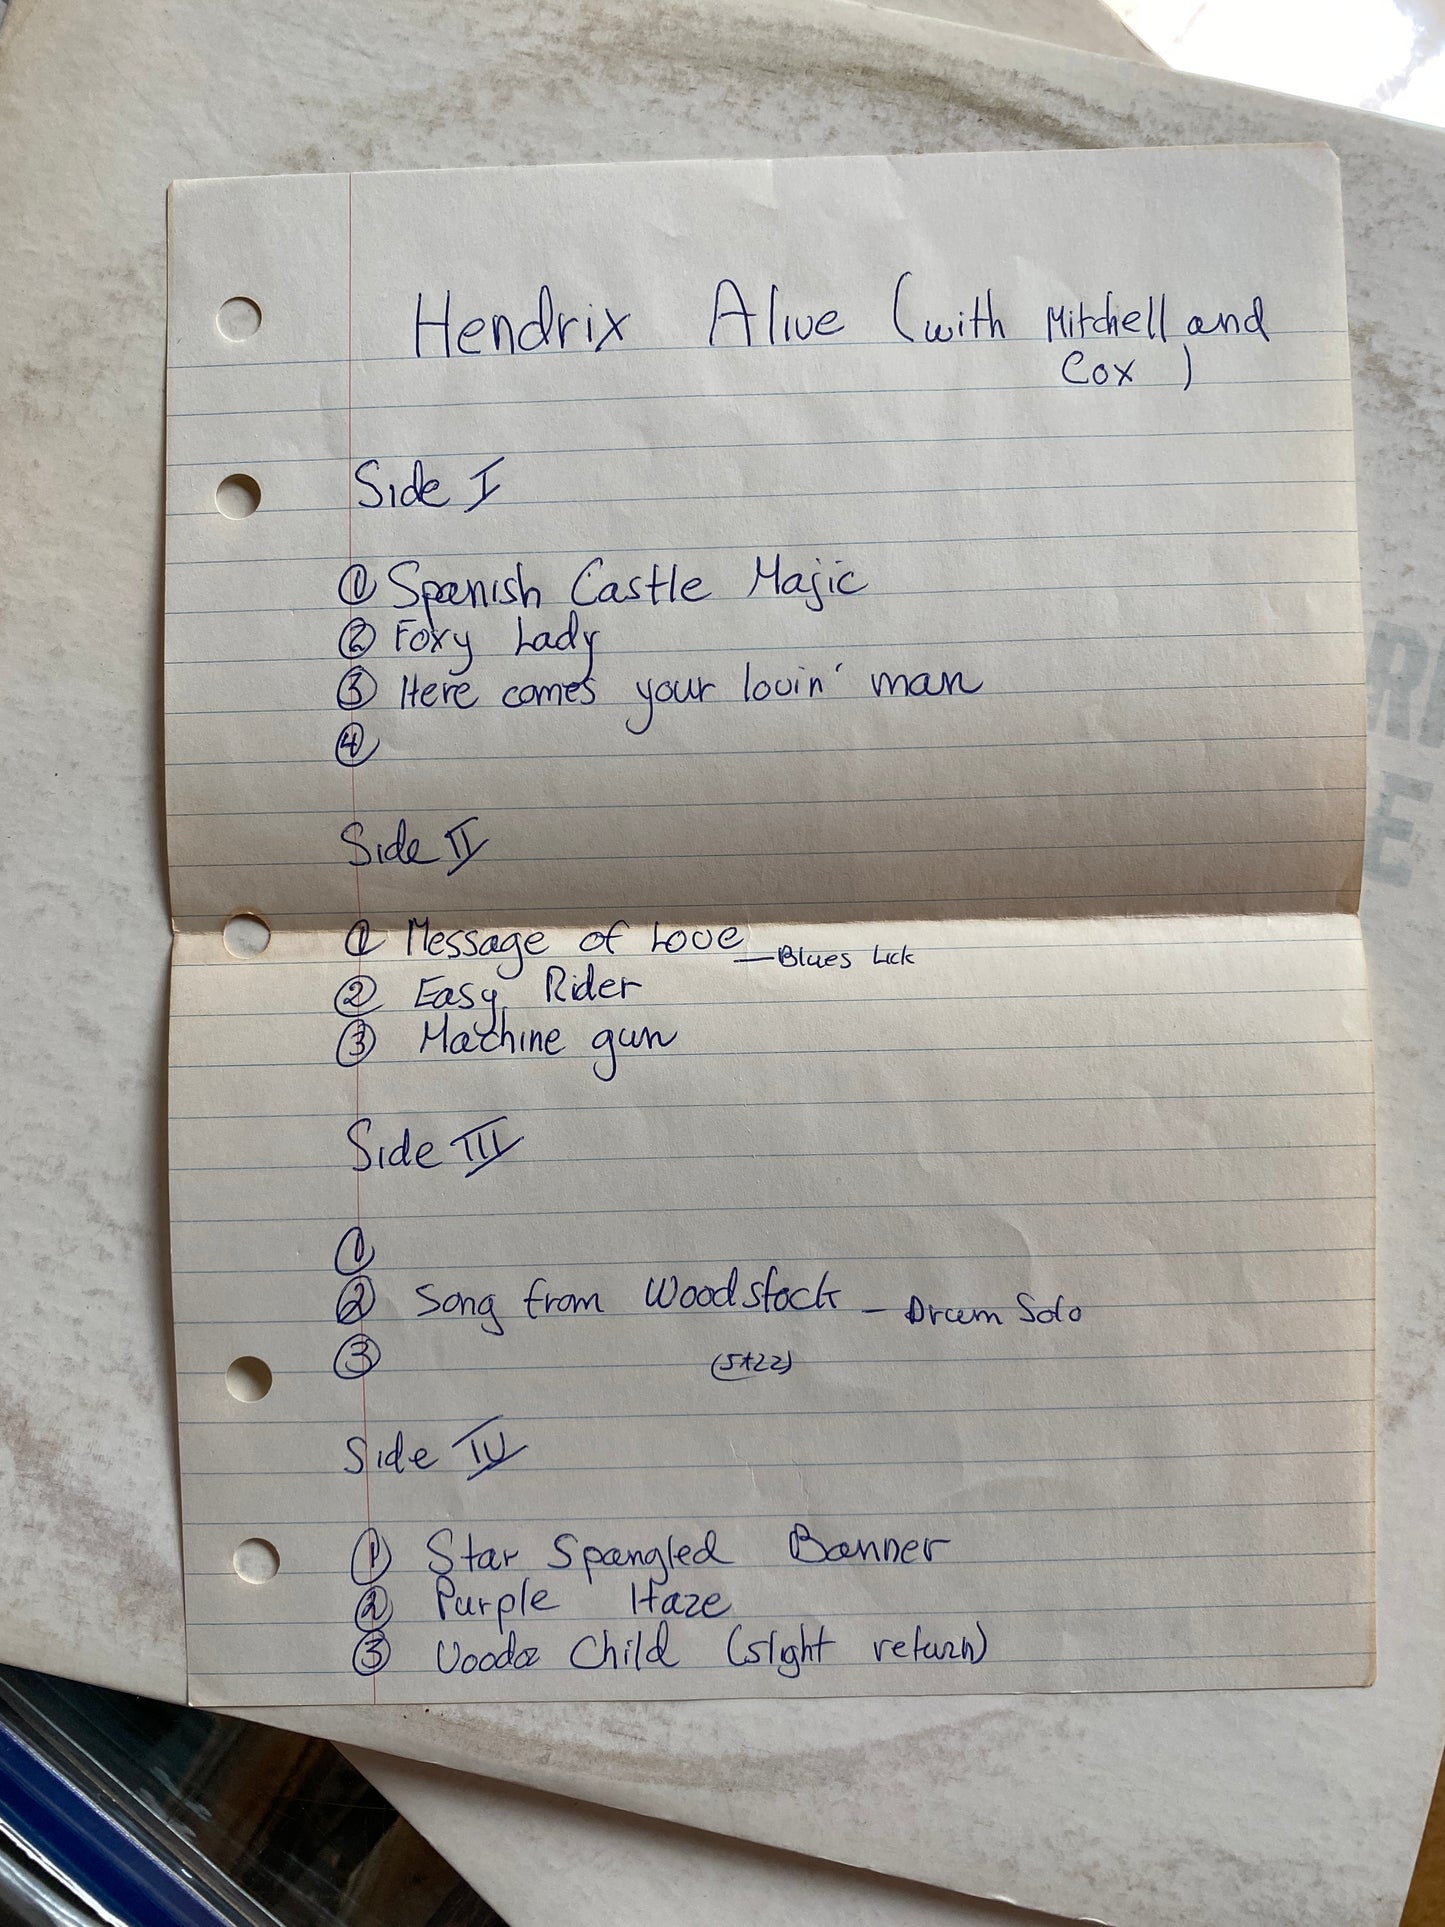 Hendrix Alive (with Mitchell and
Cox )
Side I
① Spanish Castle Majic
② Foxy Lady
③ Here comes your lovin' man
④
Side II
① Message of Love — Blues Lick
② Easy Rider
③ Machine gun
Side III
①
② Song from Woodstock — Drum Solo
③
Side IV
① Star Spangled Banner
② Purple Haze
③ Child (slight return)